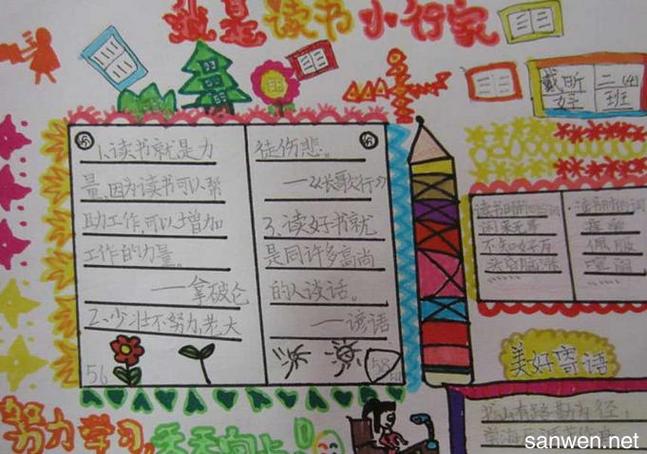 我是读书小行家
戴昕妤
二(4)班
1、读书就是力
量,因为读书可以帮
助工作,可以增加
工作的力量。
——拿破仑
2、少壮不努力,老大
56
徒伤悲。
——《长歌行》
3、读好书就
是同许多高尚
的人谈话。
——谚语
58
闲来无事
不知好歹
头昏脑涨
佩服
美好寄语
书山有路勤为径,
努力学习,天天向上!
sanwen.net